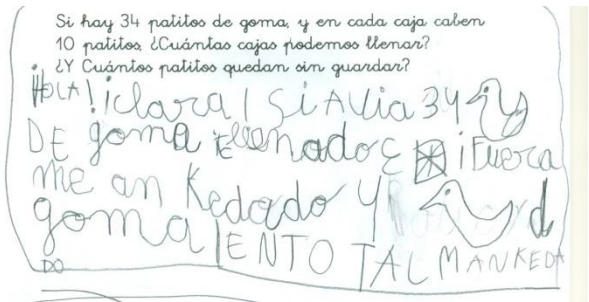 Si hay 34 patitos de goma, y en cada caja caben
10 patitos. ¿Cuántas cajas podemos llenar?
¿Y Cuántos patitos quedan sin guardar?
¡HOLA! ¡clara! Si AVia 34
DE goma E llenado 3 i Fuera
me an Kedado 4 d
goma ENTOTAL MANKEDA
DO